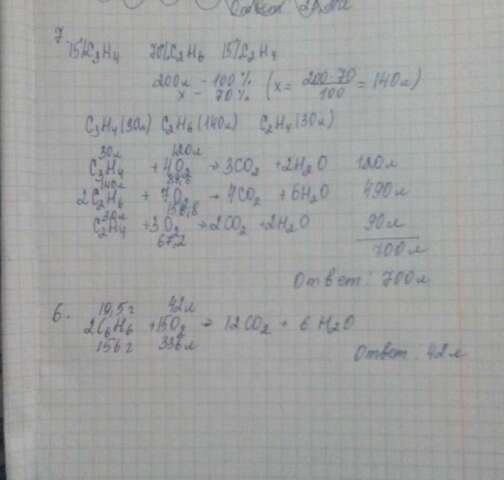 7.
15% C3H4 70% C2H6 15% C2H4
200л - 100% (x = 200·70 / 100 = 140л)
x - 70%
C3H4 (30л) C2H6 (140л) C2H4 (30л)
30л 120л
C3H4 + 4O2 → 3CO2 + 2H2O 120л
140л
2C2H6 + 7O2 → 4CO2 + 6H2O 490л
30л 156,8
C2H4 + 3O2 → 2CO2 + 2H2O 90л
67,2 700л
Ответ: 700л
6. 19,5г 42л
2C6H6 + 15O2 → 12CO2 + 6H2O
156г 336л
Ответ: 42л